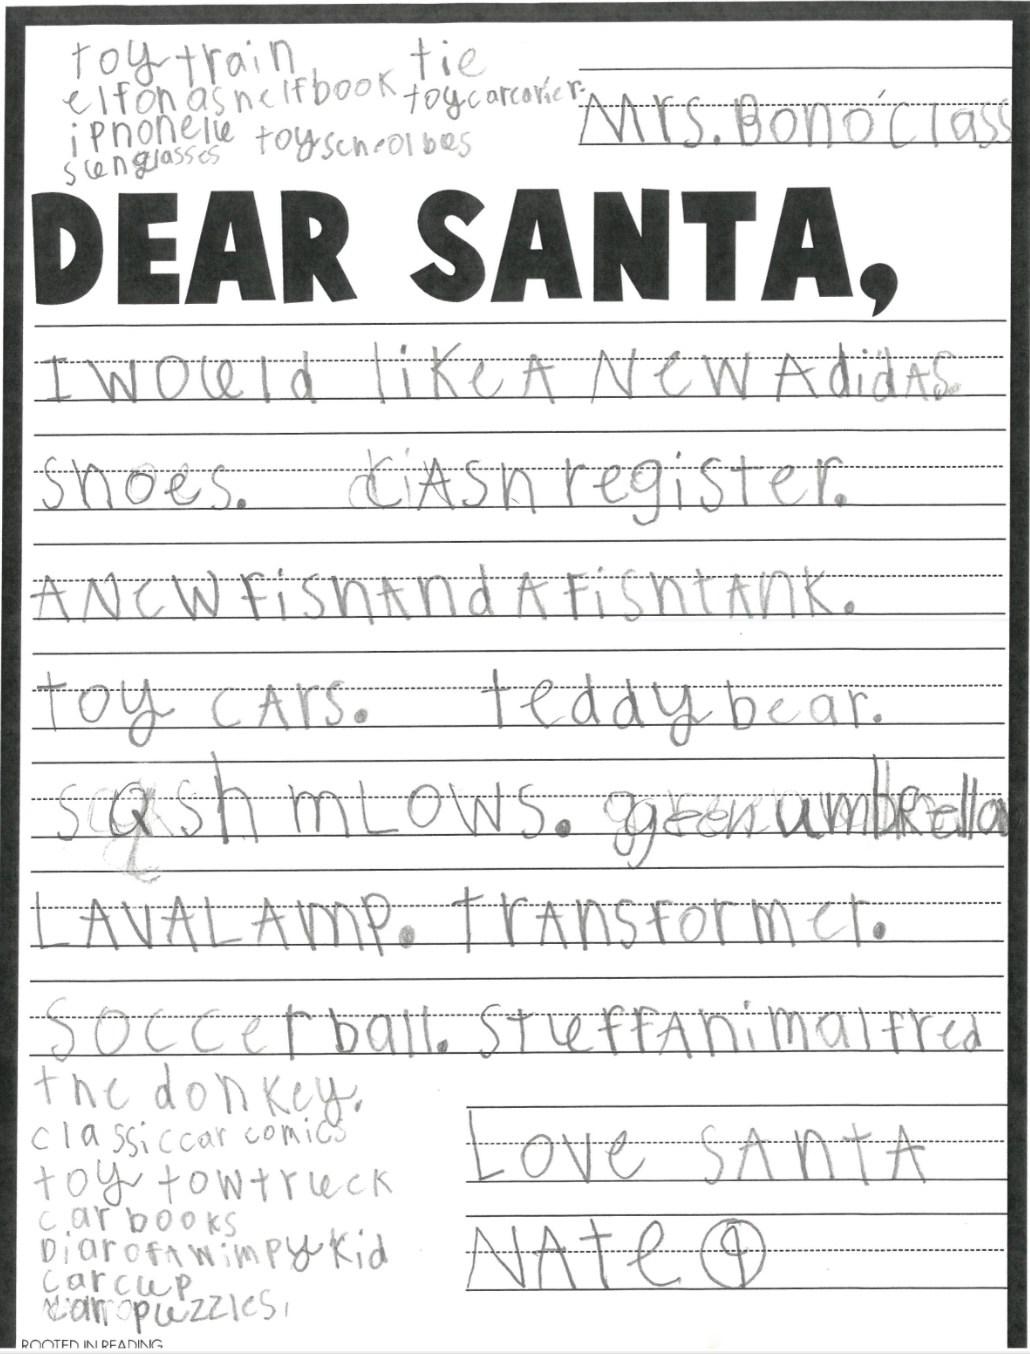 toy train tie
elfonashelfbook toycarcarier.
iphone11e toyschoolbus
sunglasses
Mrs. Bono'class
DEAR SANTA,
I would like A New Adidas
shoes. CAsh register.
A New fish And A fish tAnk.
toy cArs. teddy bear.
sqsh mLows. green umbrella
LAVA LAmp. trAnsformer.
Soccer ball. StuffAnimal fred
the donkey.
classic car comics
toy tow truck
car books
DiarofA wimpy Kid
car cup
car puzzles.
Love SANtA
NAte 9
ROOTED IN READING